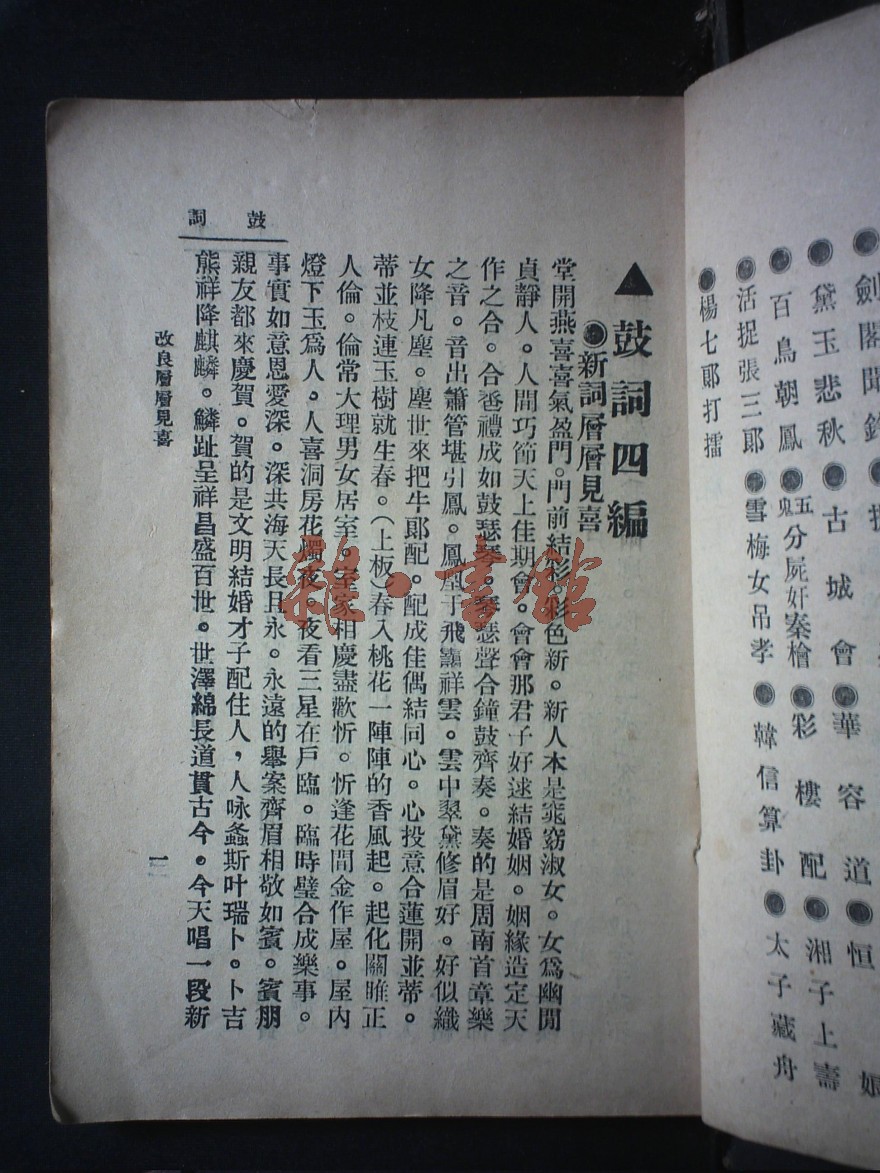 劍閣聞鈴
黛玉悲秋●古城會●華容道●恒娘
●百鳥朝鳳●五鬼分屍奸秦檜●彩樓配●湘子上壽
●活捉張三郞●雪梅女吊孝●韓信算卦●太子藏舟
●楊七郞打擂
▲鼓詞四編
●新詞層層見喜
堂開燕喜喜氣盈門。門前結彩彩色新。新人本是窕窈淑女。女爲幽閒
貞靜人。人間巧節天上佳期會。會會那君子好逑結婚姻。姻緣造定天
作之合。合巹禮成如鼓瑟琴。琴瑟聲合鐘鼓齊奏。奏的是周南首章樂
之音。音出簫管堪引鳳。鳳凰于飛靄祥雲。雲中翠黛修眉好。好似織
女降凡塵。塵世來把牛郞配。配成佳偶結同心。心投意合蓮開並蒂。
蒂並枝連玉樹就生春。(上板)春入桃花一陣陣的香風起。起化關睢正
人倫。倫常大理男女居室。室家相慶盡歡忻。忻逢花間金作屋。屋內
燈下玉爲人。人喜洞房花燭夜。夜看三星在戶臨。臨時璧合成樂事。
事實如意恩愛深。深共海天長且永。永遠的舉案齊眉相敬如賓。賓朋
親友都來慶賀。賀的是文明結婚才子配住人，人咏螽斯叶瑞卜。卜吉
熊祥降麒麟。鱗趾呈祥昌盛百世。世澤綿長道貫古今。今天唱一段新
鼓詞
改良層層見喜
一
雜·書館